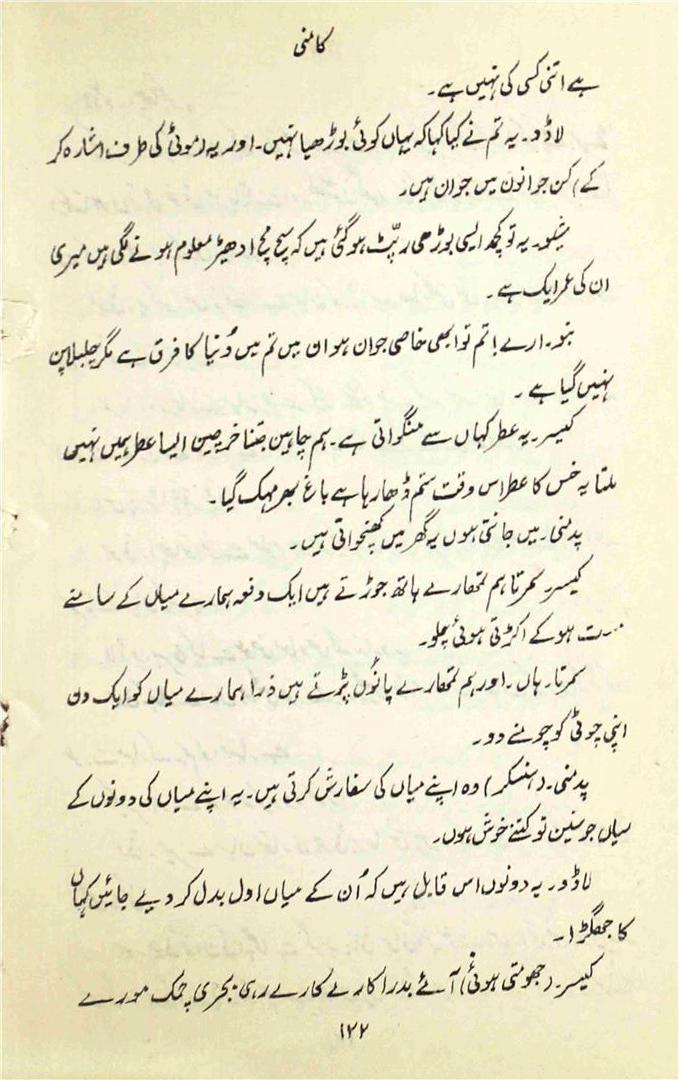 کامنی
ہے اتنی کسی کی نہیں ہے۔
لاڈو۔ یہ تم نے کیا کہا کہ یہاں کوئی بوڑھیا نہیں۔ اور یہ (موٹی کی طرف اشارہ کر
کے) کن جوانوں میں جوان ہیں۔
یہ تو کچھ ایسی بوڑھی رپٹ ہو گئی ہیں کہ سچ مچ ادھیڑ معلوم ہونے لگی ہیں میری
ان کی عمر ایک ہے۔
بنو۔ ارے! تم تو ابھی خاصی جوان ہو ان میں تم میں دُنیا کا فرق ہے مگر چلبلاپن
نہیں گیا ہے۔
کیسر۔ یہ عطر کہاں سے منگواتی ہے۔ ہم چاہین جتنا خرچین ایسا عطر ہمیں نہیں
ملتا یہ خس کا عطر اس وقت ستم ڈھا رہا ہے باغ بھر مہک گیا۔
پدمنی۔ میں جانتی ہوں یہ گھر میں کھنچواتی ہیں۔
کیسر۔ سمرتا ہم تمھارے ہاتھ جوڑتے ہیں ایک دفعہ ہمارے میاں کے سامنے
ہو کے اکڑتی ہوئی چلو۔
سمرتا۔ ہاں۔ اور ہم تمھارے پانوں پڑتے ہیں ذرا ہمارے میاں کو ایک دن
اپنی چوٹی کو چومنے دو۔
پدمنی۔ (ہنسکر) وہ اپنے میاں کی سفارش کرتی ہیں۔ یہ اپنے میاں کی دونوں کے
میاں جو سنین تو کتنے خوش ہوں۔
لاڈو۔ یہ دونوں اس قابل ہیں کہ اُن کے میاں اول بدل کر دیے جائیں کہاں
کا جھگڑا۔
کیسر۔ (جھومتی ہوئی) آئے بدرا کارے کارے رہی بجری چمک مورے
۱۲۲